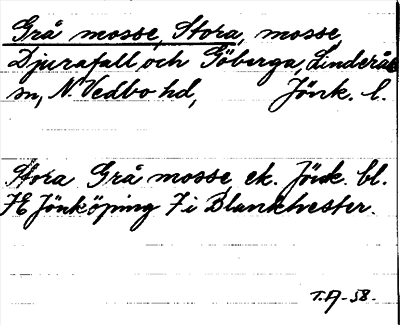 Grå mosse, Stora, mosse
Djurafall och Göberga, Linderås
sn, N. Vedbo hd, Jönk. l.
Stora Grå mosse, ek. Jönk. bl.
7E Jönköping 7 i Blankhester.
T.A-58.